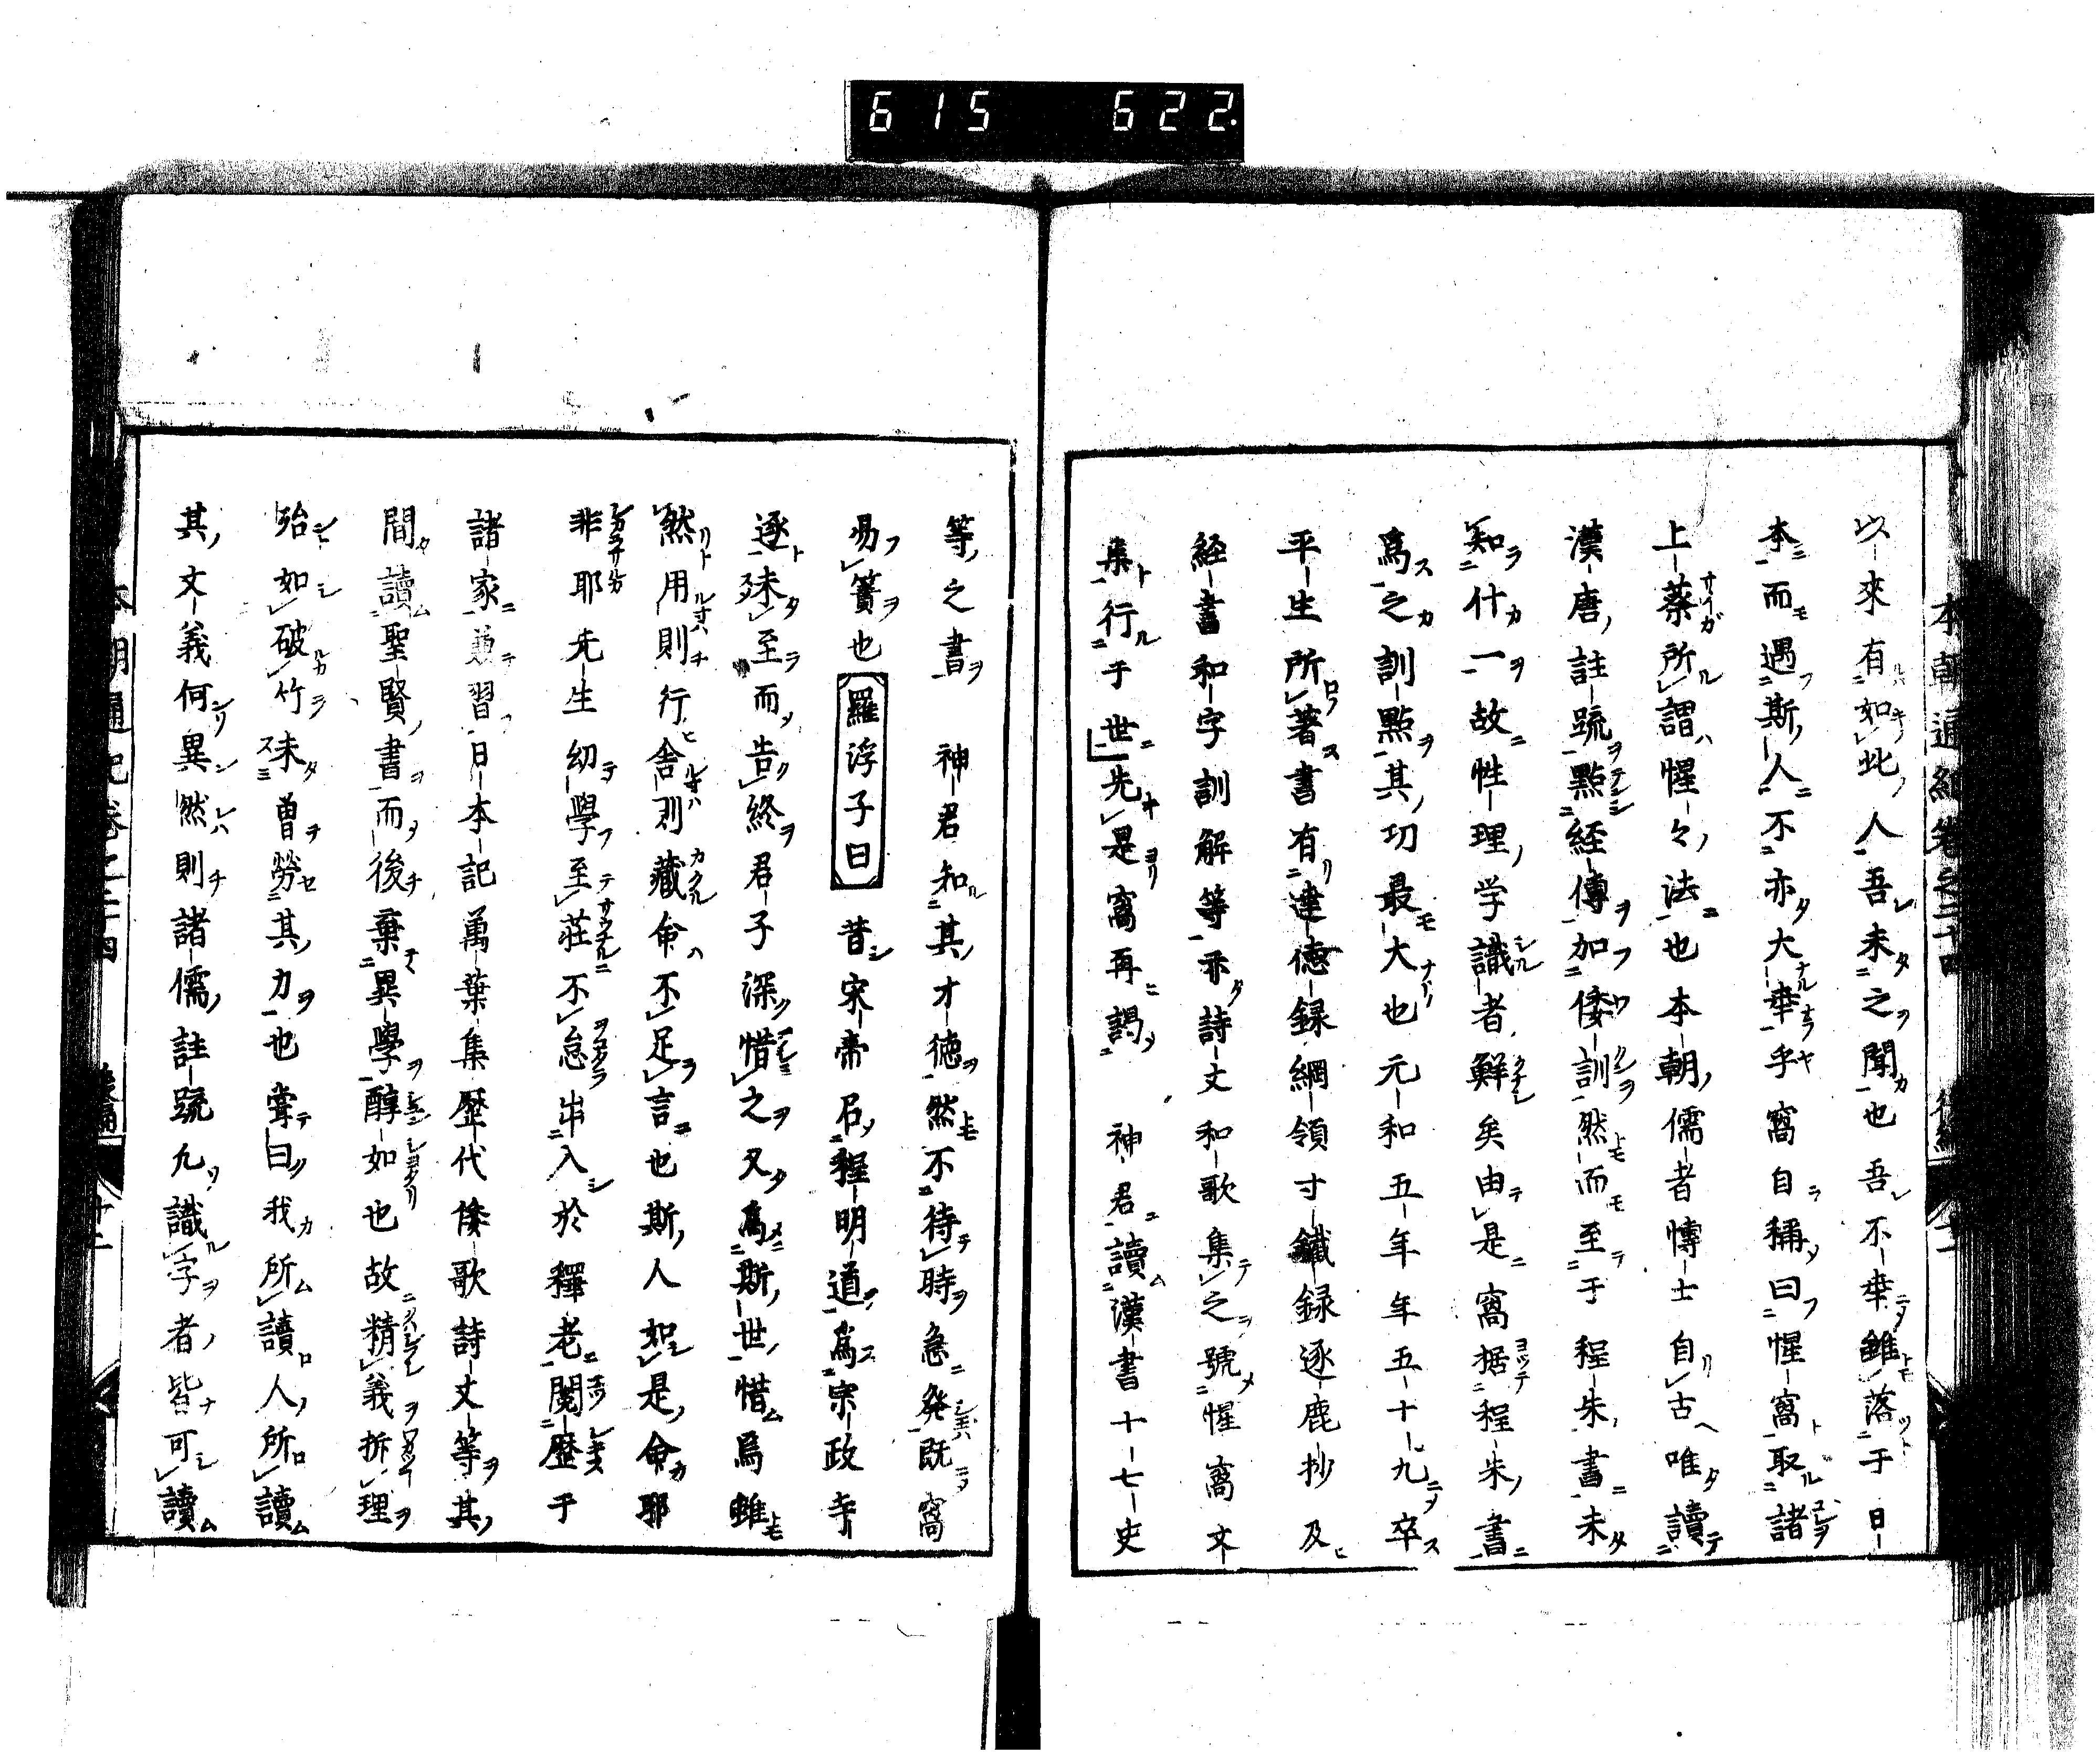 615 622
以來有如此人吾未之聞也吾不幸雖落于日
本而遇斯人不亦大幸乎窩自稱曰惺窩取諸
上蔡所謂惺々法也本朝儒者博士自古唯讀
漢唐註疏點經傳加倭訓然而至于程朱書未
知什一故性理学識者鮮矣由是窩据程朱書
爲之訓點其功最大也元和五年年五十九卒
平生所著書有達德録綱領寸鐵録逐鹿抄及
経書和字訓解等亦詩文和歌集之號惺窩文
集行于世先是窩再謁 神君讀漢書十七史
等之書 神君知其才德然不待時急発既窩
易簀也羅浮子曰昔宋帝召程明道爲宗政寺
逐未至而告終君子深惜之又爲斯世惜焉雖
然用則行舎則藏命不足言也斯人如是命耶
非耶先生幼學至莊不怠出入於釋老閲歴于
諸家兼習日本記萬葉集歴代倭歌詩文等其
間讀聖賢書而後棄異學醇如也故精義拆理
殆如破竹未曽勞其力也嘗曰我所讀人所讀
其文義何異然則諸儒註疏凡識字者皆可讀
本朝通紀卷之二十四 後編 十二